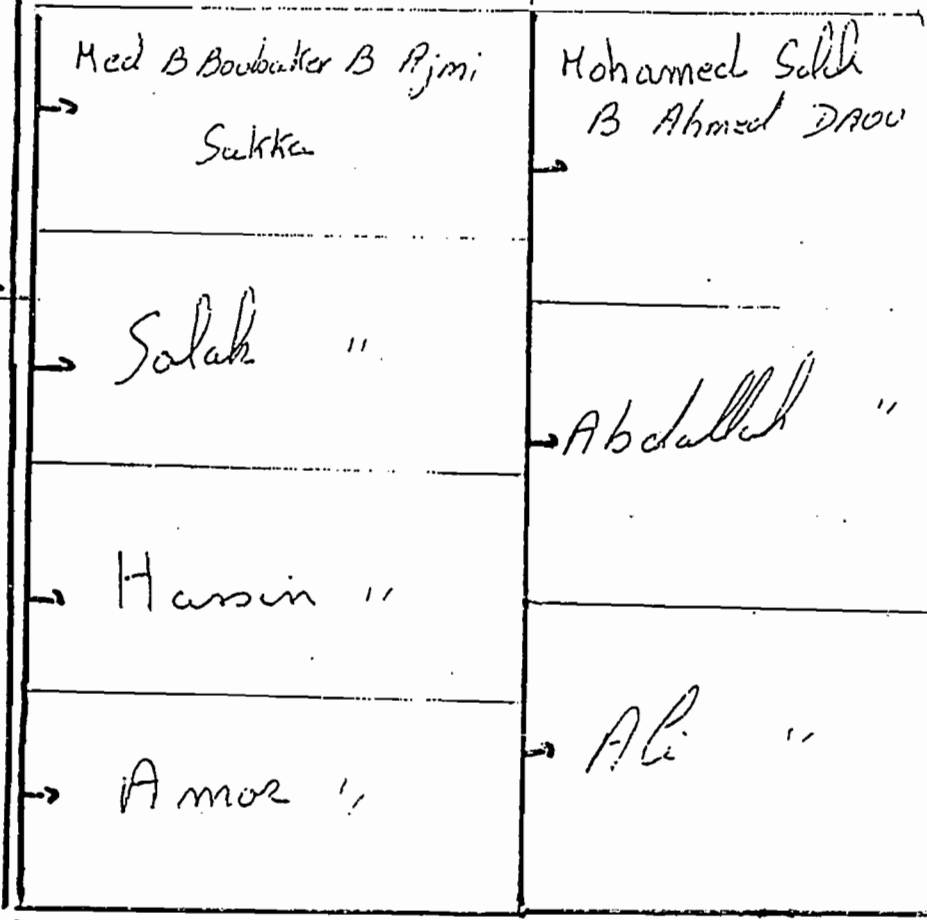 Med B Boubaker B Ajmi
Sakka
Salah "
Hassin "
Amor "
Mohamed Salah
B Ahmed DAOU
Abdallah "
Ali "